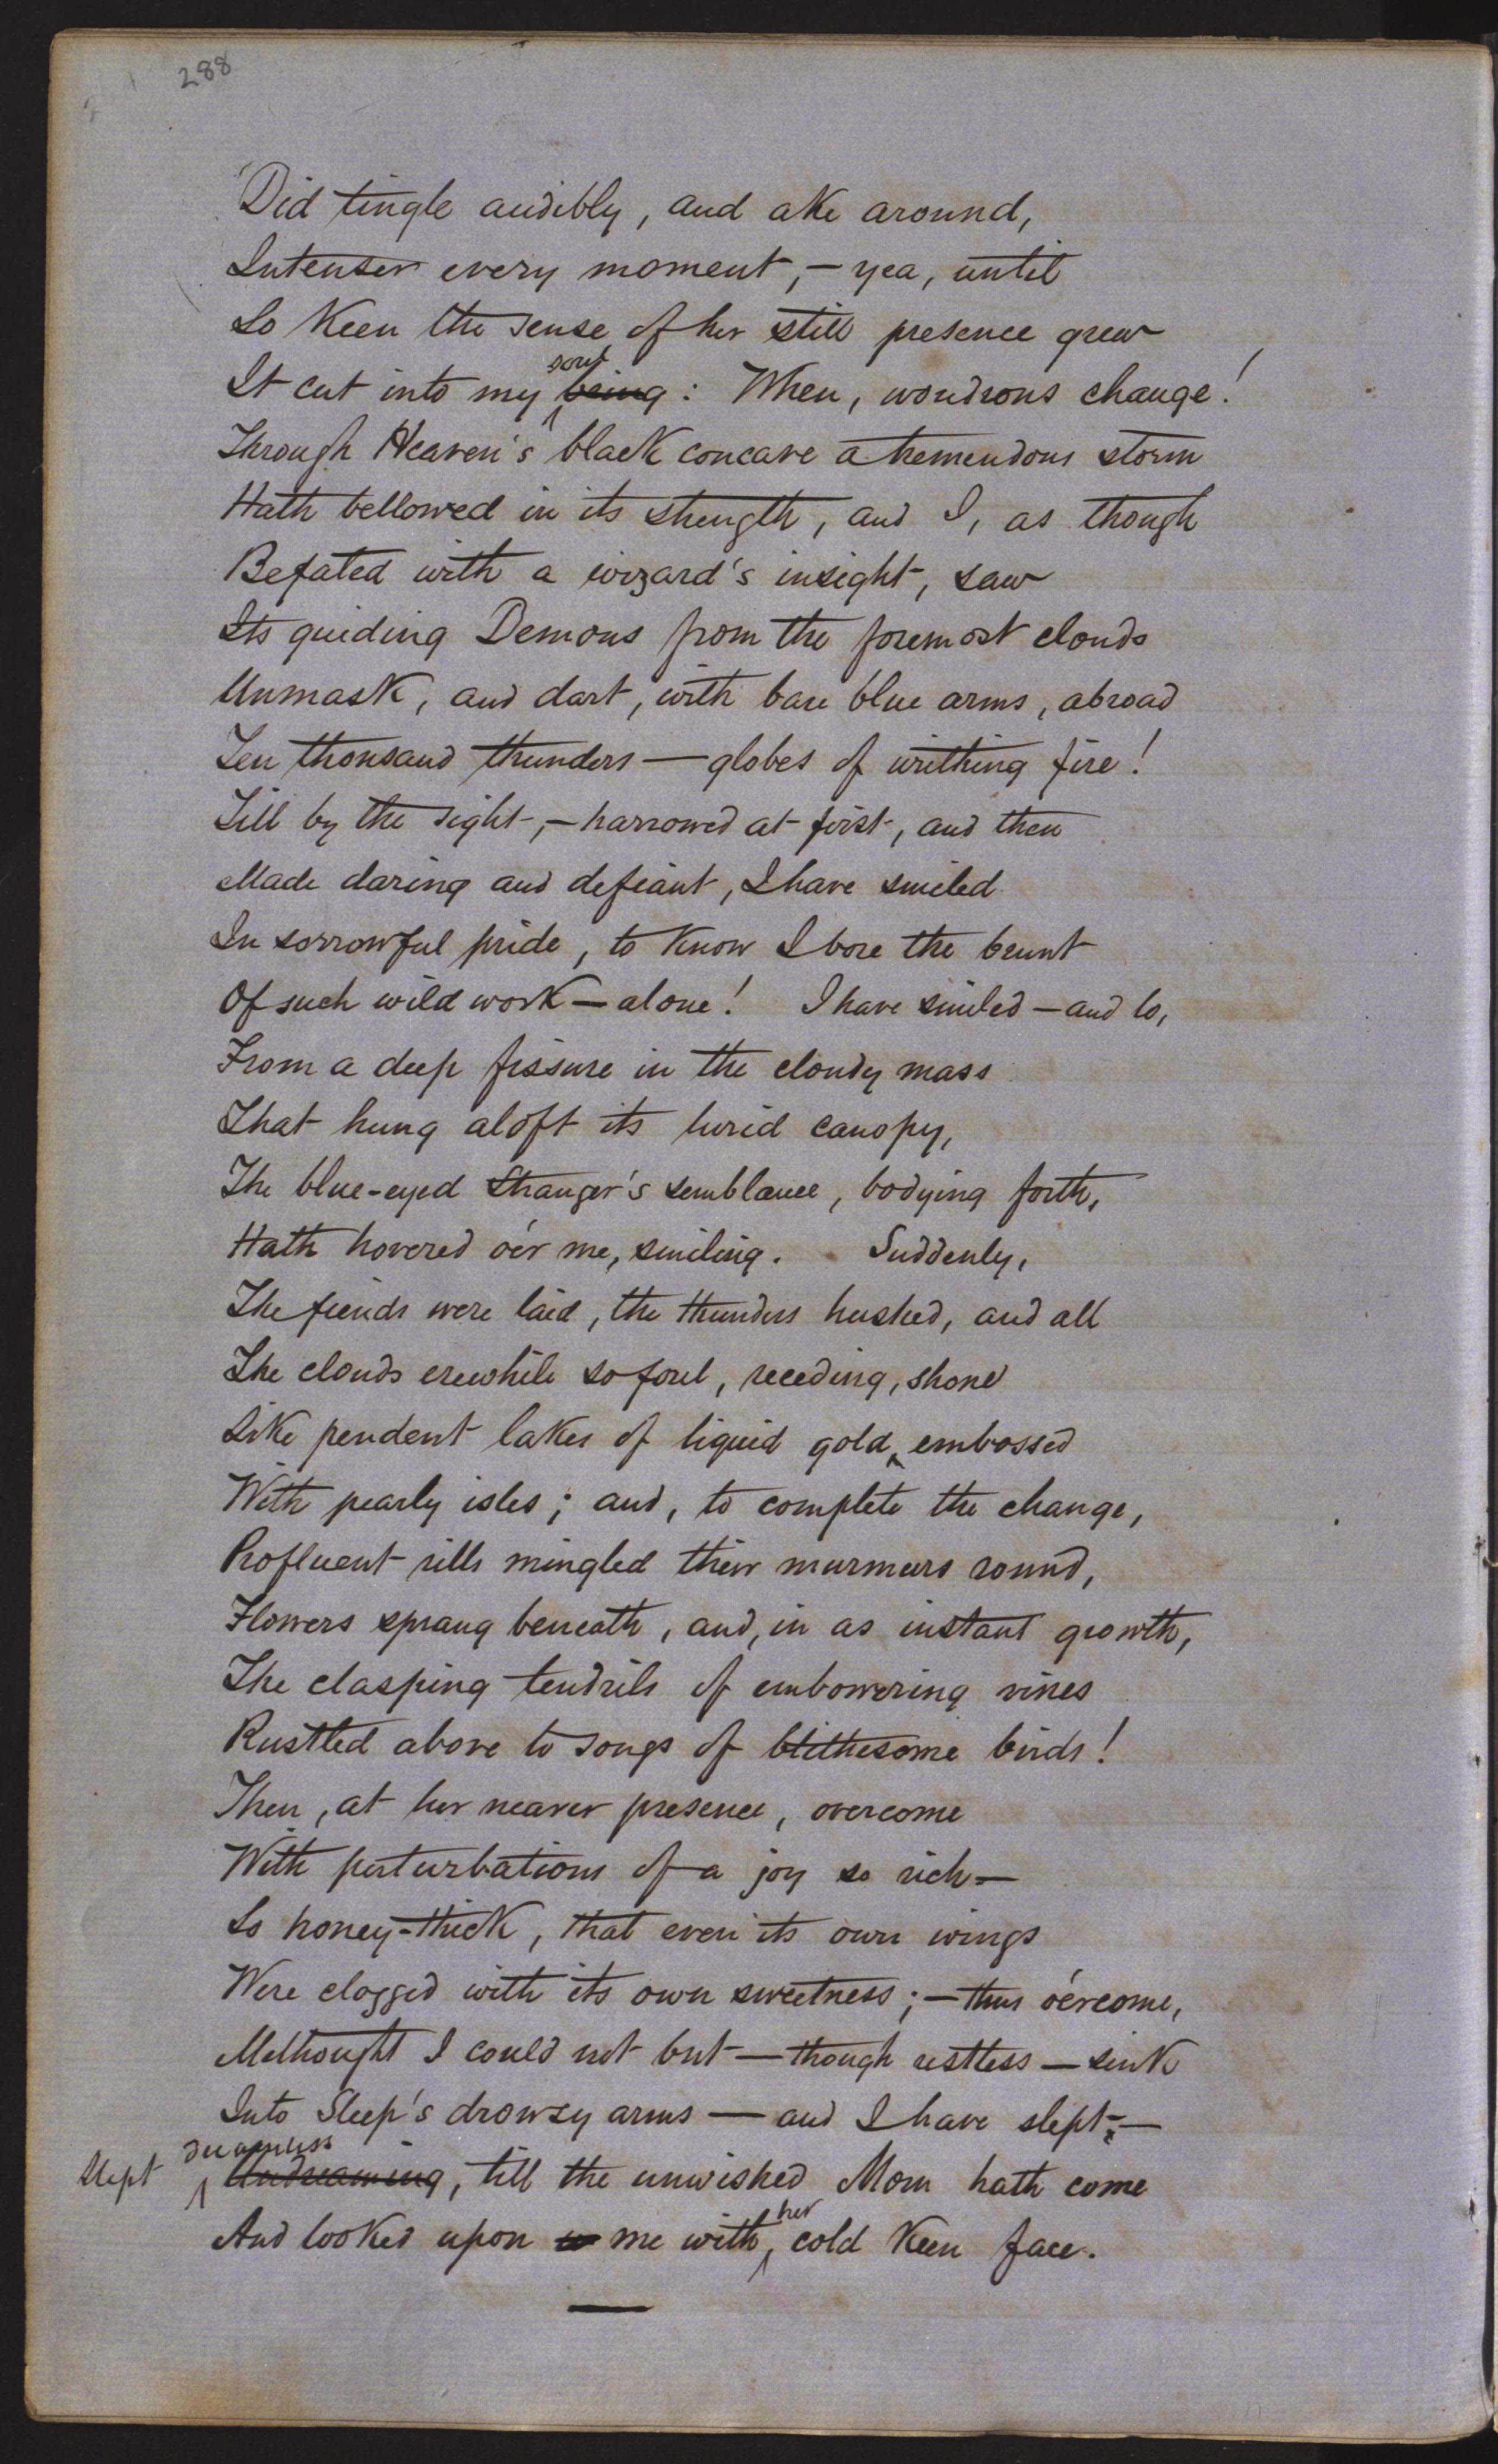 288
Did tingle audibly, and ake around,
Intenser every moment,— yea, until
So keen the sense of her still presence grew
It cut into my being soul: When, wondrous change!
Through Heaven's black concave a tremendous storm
Hath bellowed in its strength, and I, as though
Befated with a wizard's insight, saw
Its guiding Demons from the foremost clouds
Unmask, and dart, with bare blue arms, abroad
Ten thousand thunders — globes of writhing fire!
Till by the sight,— harrowed at first, and then
Made daring and defiant, I have smiled
In sorrowful pride, to know I bore the brunt
Of such wild work — alone! I have smiled — and lo,
From a deep fissure in the cloudy mass
That hung aloft its lurid canopy,
The blue-eyed Stranger's semblance, bodying forth,
Hath hovered o'er me, smiling. Suddenly,
The fiends were laid, the thunders hushed, and all
The clouds erewhile so foul, receding, shone
Like pendent lakes of liquid gold, embossed
With pearly isles; and, to complete the change,
Profluent rills mingled their murmurs round,
Flowers sprang beneath, and, in as instant growth,
The clasping tendrils of embowering vines
Rustled above to songs of blithesome birds!
Then, at her nearer presence, overcome
With perturbations of a joy so rich—
So honey-thick, that even its own wings
Were clogged with its own sweetness;— thus o'ercome,
Methought I could not but — though restless — sink
Into Sleep's drowsy arms — and I have slept;—
Slept dreamless Undreaming, till the unwished Morn hath come
And looked upon me with her cold keen face.